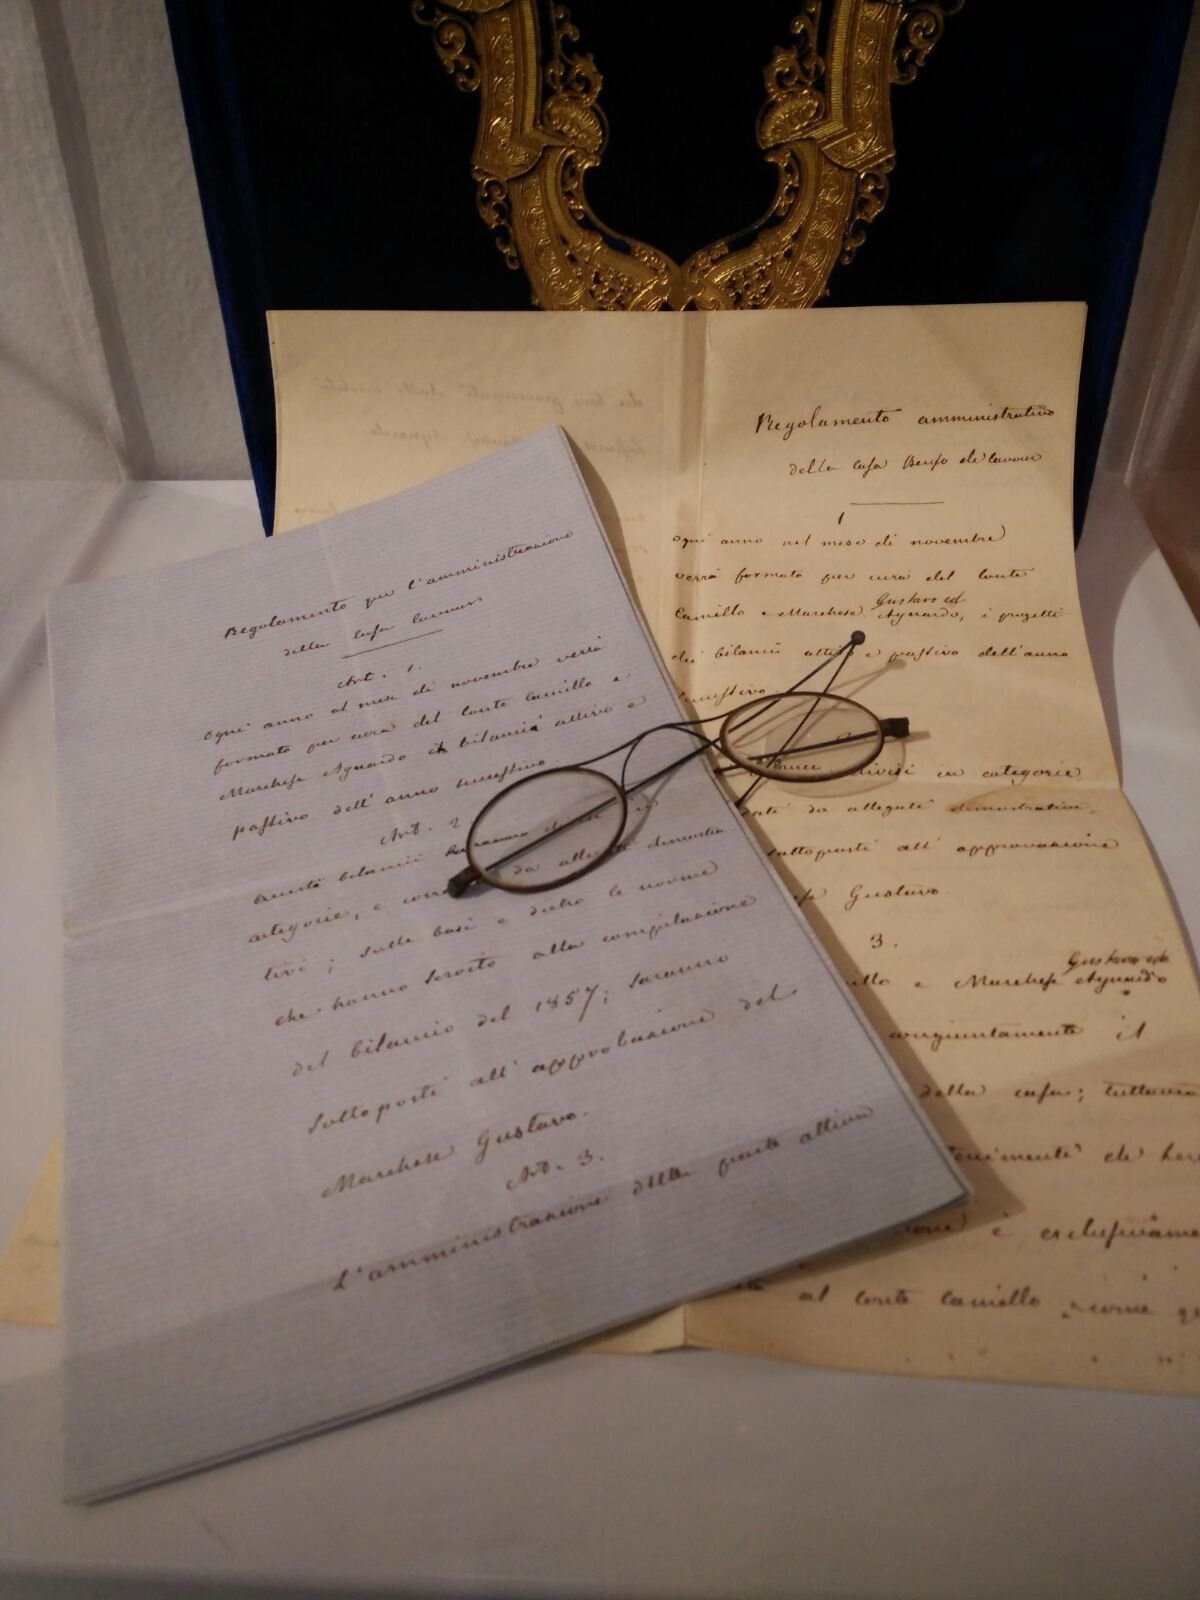 Regolamento per l'amministrazione
della casa Cavour
Art. 1.
Ogni anno al mese di novembre verrà
formato per cura del Conte Camillo e
Marchese Aynardo il bilancio attivo e
passivo dell'anno successivo.
Art. 2
Questi bilanci
categorie, e da allegati dimostra-
tivi; sulle basi e dietro le norme
che hanno servito alla compilazione
del bilancio del 1857; saranno
sottoposti all'approvazione del
Marchese Gustavo.
Art. 3.
L'amministrazione della parte attiva
Regolamento amministrativo
della casa Benso di Cavour
1
Ogni anno nel mese di novembre
verrà formato per cura del Conte
Gustavo ed
Camillo e Marchese Aynardo, i progetti
dei bilanci attivo e passivo dell'anno
successivo.
divisi in categorie
dati da allegati dimostrativi,
sottoposti all'approvazione
Gustavo.
3.
Gustavo ed
e Marchese Aynardo
congiuntamente il
della casa; tuttavia
è esclusivame
al Conte Camillo, come